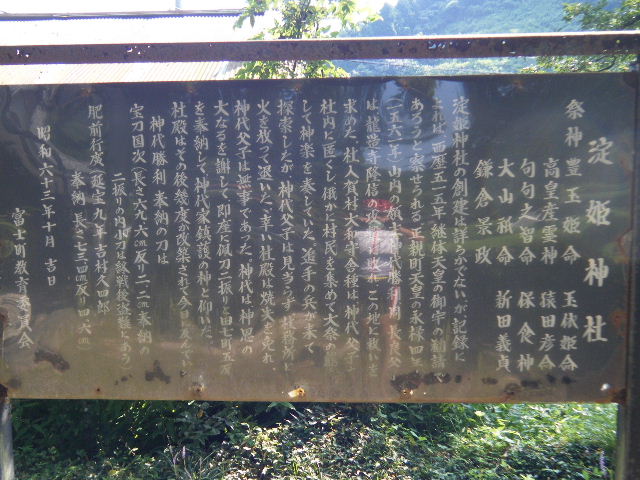 淀姫神社
祭神 豊玉姫命 玉依姫命
高皇産霊神 猿田彦命
句句之智命 保食神
大山祇命 新田義貞
鎌倉景政
淀姫神社の創建は詳らかでないが記録に
これは西暦五一五年継体天皇の御宇の勧請で
あろうと察せられる。正親町天皇の永禄四年
(一五六一年)山内の領主神代勝利・長良父子
は龍造寺隆信の攻撃に敗れこの地に救いを
求めた 社人賀村大和守舎種は神代父子を
社内に匿くし俄かに村民を集めて大祭の様に
して神楽を奏していた。追手の兵が来て
探索したが 神代父子は見当らず 社務所に
火を放って退いた。幸い社殿は焼失を免れ
神代父子は無事であった。神代は神恩の
大なるを謝して即座に佩刀二振りと田七町五反
を奉納して神代家鎮護の神と仰いだ。
社殿はその後幾度か改築されて今日に及んでいる
神代勝利 奉納の刀は
宝刀国次(長さ六九・六㎝反り二・二㎝)奉納の
二振りの内小刀は敗戦後盗難にあう
肥前行廣(延宝九年 吉村久四郎
奉納 長さ七三・四㎝反り四・六㎝)
昭和六十三年十月 吉日
富士町教育委員会